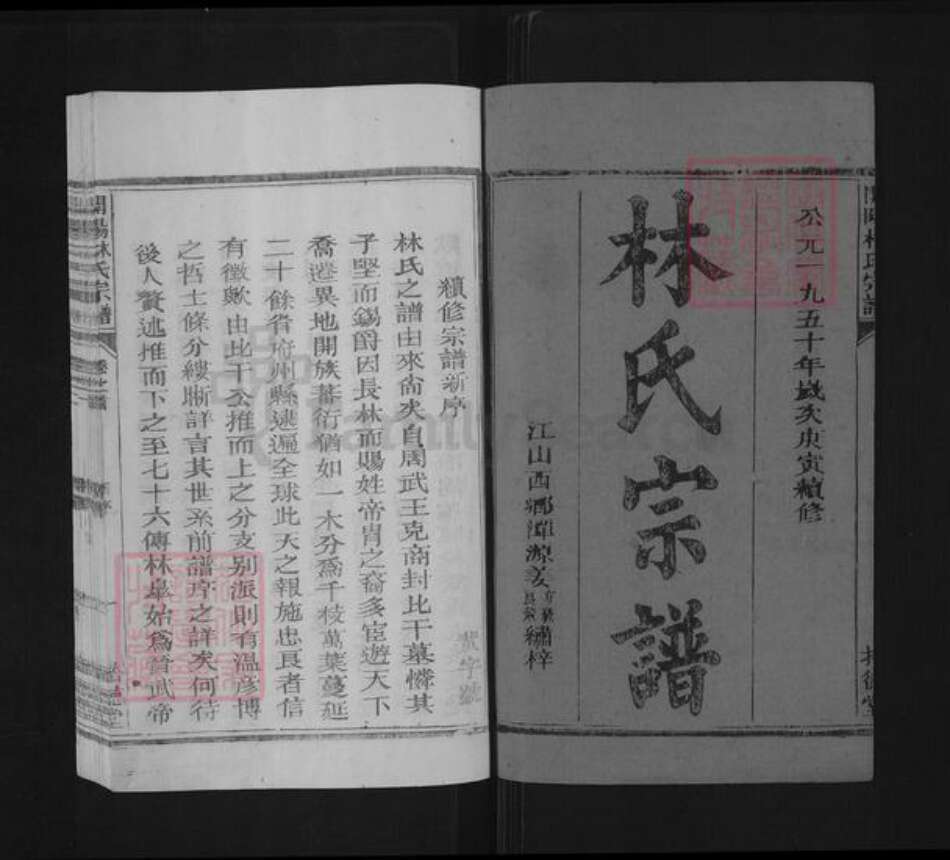 公元一九五十年歲次庚寅續修
林氏宗譜
江山西鄉潭源姜
繡梓
續修宗譜新序
林氏之譜由來尚矣自周武王克商封比干墓憐其
子堅而錫爵因長林而賜姓帝胄之裔多宦遊天下
喬遷異地開族蕃衍猶如一木分為千枝萬葉蔓延
二十餘省府州縣逮遍全球此天之報施忠良者信
有徵歟由比干公推而上之分支別派則有溫彥博
之哲士條分縷晰詳言其世系前譜序之詳矣何待
後人贅述推而下之至七十六傳林皐始為晉武帝
林氏宗譜